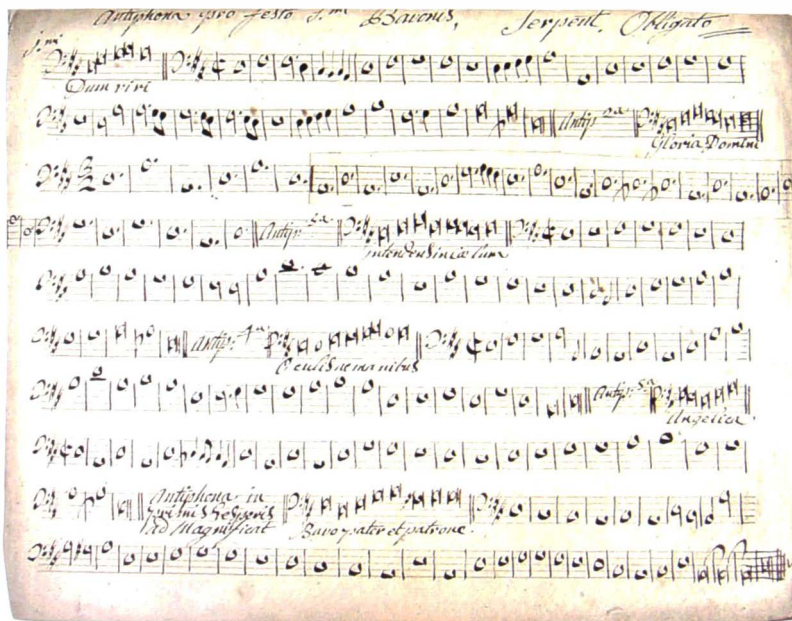 Antiphona pro festo S.mi Bavonis, Serpent, Obligato
Dum viri
Antip: 2a
Gloria Domini
Antip: 3a
intendens in cælum
Antip: 4a
Oculis ac manibus
Antip: 5a
Angelica
Antiphona in
primis Vesperis
ad Magnificat
Bavo pater et patrone.